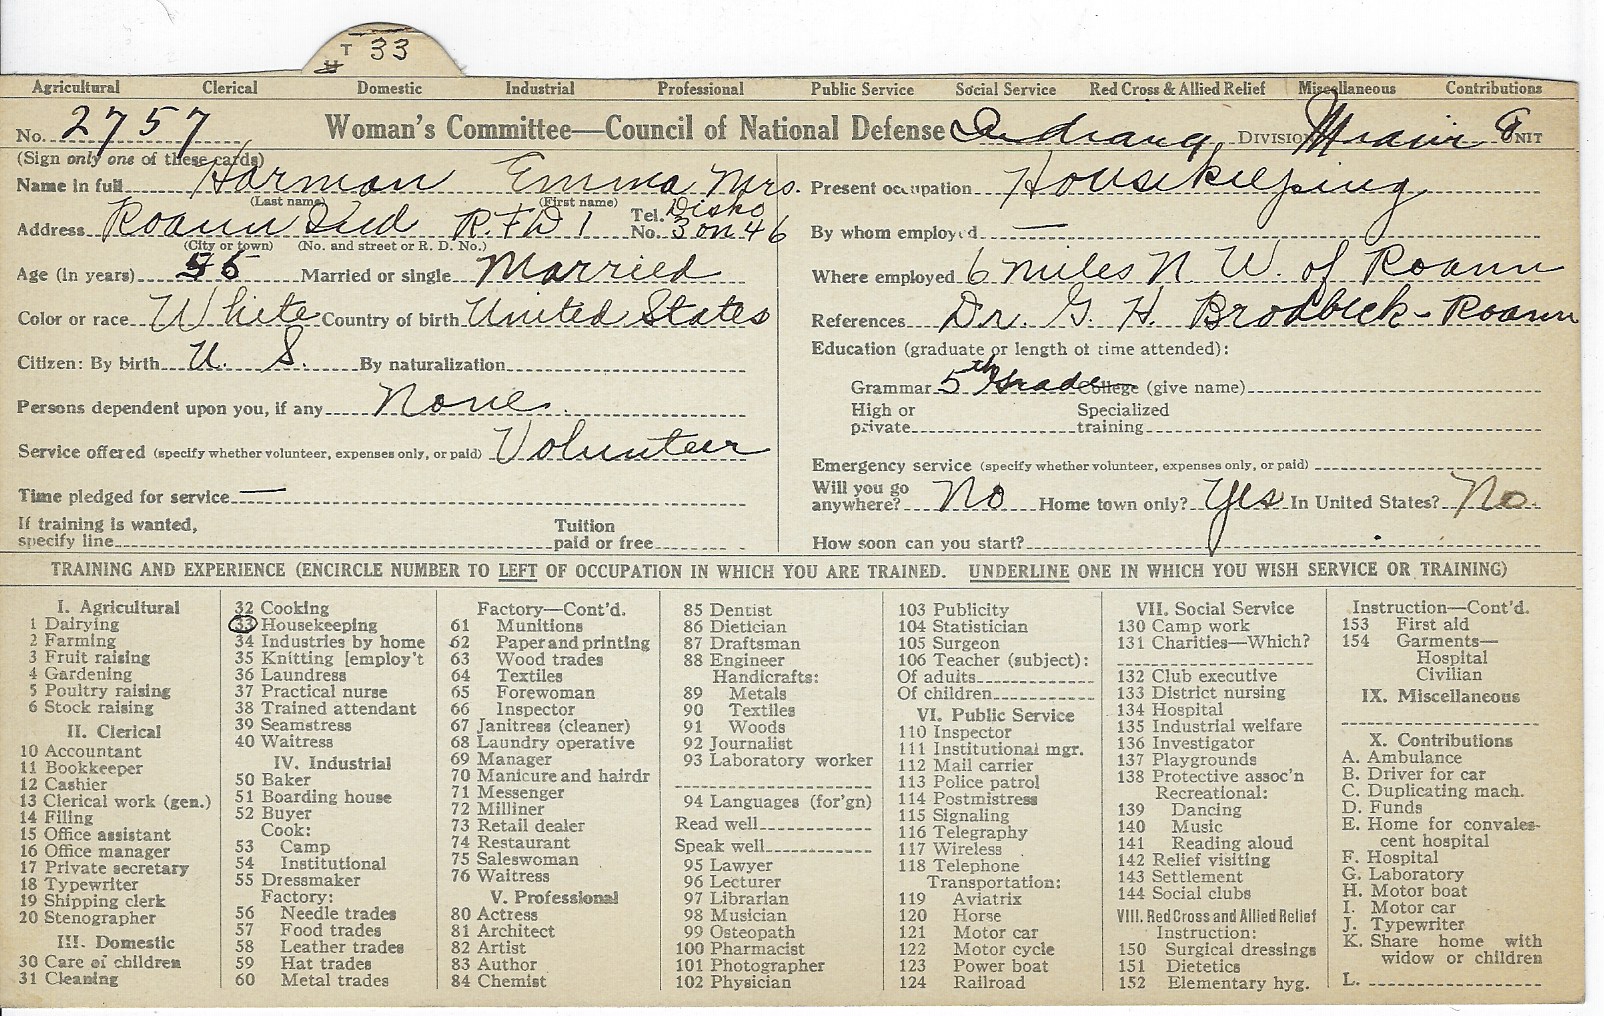 T 33
Agricultural Clerical Domestic Industrial Professional Public Service Social Service Red Cross & Allied Relief Miscellaneous Contributions
No. 2757 Woman's Committee—Council of National Defense Indiana DIVISION Miami UNIT
(Sign only one of these cards)
Name in full Harman Emma Mrs.
(Last name) (First name)
Address Roann Ind R.F.D 1 Tel. No. Disko 3 on 46
(City or town) (No. and street or R. D. No.)
Age (in years) 55 Married or single Married
Color or race White Country of birth United States
Citizen: By birth U. S. By naturalization
Persons dependent upon you, if any None.
Service offered (specify whether volunteer, expenses only, or paid) Volunteer
Time pledged for service —
If training is wanted, specify line Tuition paid or free
Present occupation Housekeeping
By whom employed —
Where employed 6 miles N W. of Roann
References Dr. G. H. Brodbeck - Roann
Education (graduate or length of time attended):
Grammar 5th Grade College (give name)
High or private Specialized training
Emergency service (specify whether volunteer, expenses only, or paid)
Will you go anywhere? No Home town only? Yes In United States? No.
How soon can you start?
TRAINING AND EXPERIENCE (ENCIRCLE NUMBER TO LEFT OF OCCUPATION IN WHICH YOU ARE TRAINED. UNDERLINE ONE IN WHICH YOU WISH SERVICE OR TRAINING)
I. Agricultural
1 Dairying
2 Farming
3 Fruit raising
4 Gardening
5 Poultry raising
6 Stock raising
II. Clerical
10 Accountant
11 Bookkeeper
12 Cashier
13 Clerical work (gen.)
14 Filing
15 Office assistant
16 Office manager
17 Private secretary
18 Typewriter
19 Shipping clerk
20 Stenographer
III. Domestic
30 Care of children
31 Cleaning
32 Cooking
33 Housekeeping
34 Industries by home
35 Knitting [employ't
36 Laundress
37 Practical nurse
38 Trained attendant
39 Seamstress
40 Waitress
IV. Industrial
50 Baker
51 Boarding house
52 Buyer
Cook:
53 Camp
54 Institutional
55 Dressmaker
Factory:
56 Needle trades
57 Food trades
58 Leather trades
59 Hat trades
60 Metal trades
Factory—Cont'd.
61 Munitions
62 Paper and printing
63 Wood trades
64 Textiles
65 Forewoman
66 Inspector
67 Janitress (cleaner)
68 Laundry operative
69 Manager
70 Manicure and hairdr
71 Messenger
72 Milliner
73 Retail dealer
74 Restaurant
75 Saleswoman
76 Waitress
V. Professional
80 Actress
81 Architect
82 Artist
83 Author
84 Chemist
85 Dentist
86 Dietician
87 Draftsman
88 Engineer
Handicrafts:
89 Metals
90 Textiles
91 Woods
92 Journalist
93 Laboratory worker
94 Languages (for'gn)
Read well
Speak well
95 Lawyer
96 Lecturer
97 Librarian
98 Musician
99 Osteopath
100 Pharmacist
101 Photographer
102 Physician
103 Publicity
104 Statistician
105 Surgeon
106 Teacher (subject):
Of adults
Of children
VI. Public Service
110 Inspector
111 Institutional mgr.
112 Mail carrier
113 Police patrol
114 Postmistress
115 Signaling
116 Telegraphy
117 Wireless
118 Telephone
Transportation:
119 Aviatrix
120 Horse
121 Motor car
122 Motor cycle
123 Power boat
124 Railroad
VII. Social Service
130 Camp work
131 Charities—Which?
132 Club executive
133 District nursing
134 Hospital
135 Industrial welfare
136 Investigator
137 Playgrounds
138 Protective assoc'n
Recreational:
139 Dancing
140 Music
141 Reading aloud
142 Relief visiting
143 Settlement
144 Social clubs
VIII. Red Cross and Allied Relief
Instruction:
150 Surgical dressings
151 Dietetics
152 Elementary hyg.
Instruction—Cont'd.
153 First aid
154 Garments—
Hospital
Civilian
IX. Miscellaneous
X. Contributions
A. Ambulance
B. Driver for car
C. Duplicating mach.
D. Funds
E. Home for convales-
cent hospital
F. Hospital
G. Laboratory
H. Motor boat
I. Motor car
J. Typewriter
K. Share home with
widow or children
L.